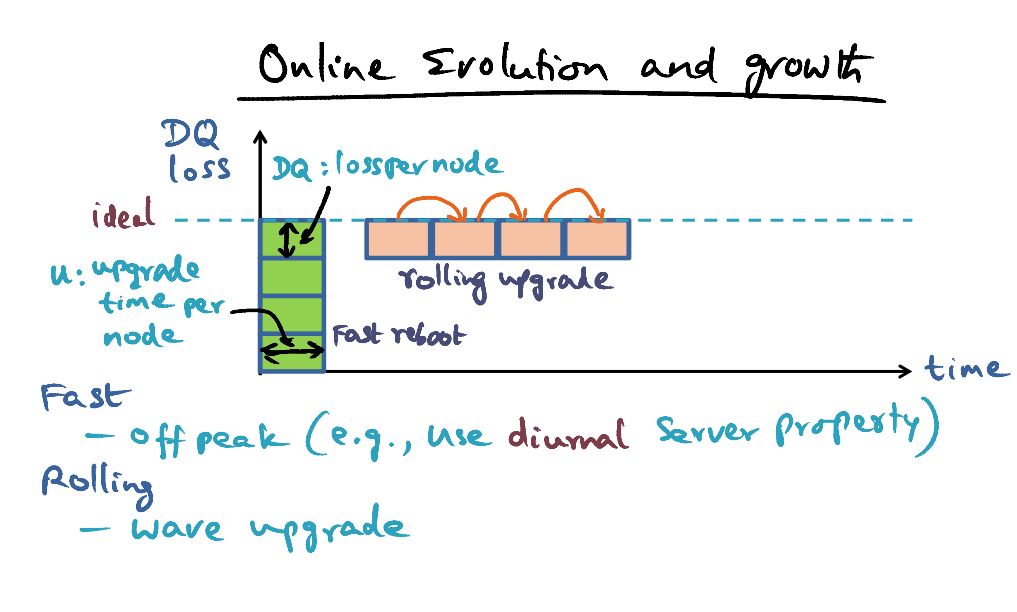 Online Evolution and growth
DQ
loss
DQ: loss per node
ideal
rolling upgrade
u: upgrade
time per
node
Fast reboot
time
Fast
- off peak (e.g., use diurnal server property)
Rolling
- wave upgrade